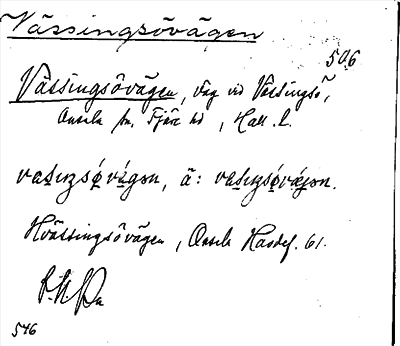 Vässingsövägen
506
Vässingsövägen, väg vid Vässingsö,
Onsala sn, Fjäre hd, Hall. l.
vasıŋsǿvǻgən, ä: vasıŋsǿvǻgən.
Hvässingsövägen, Onsala Hasdef. 61.
546